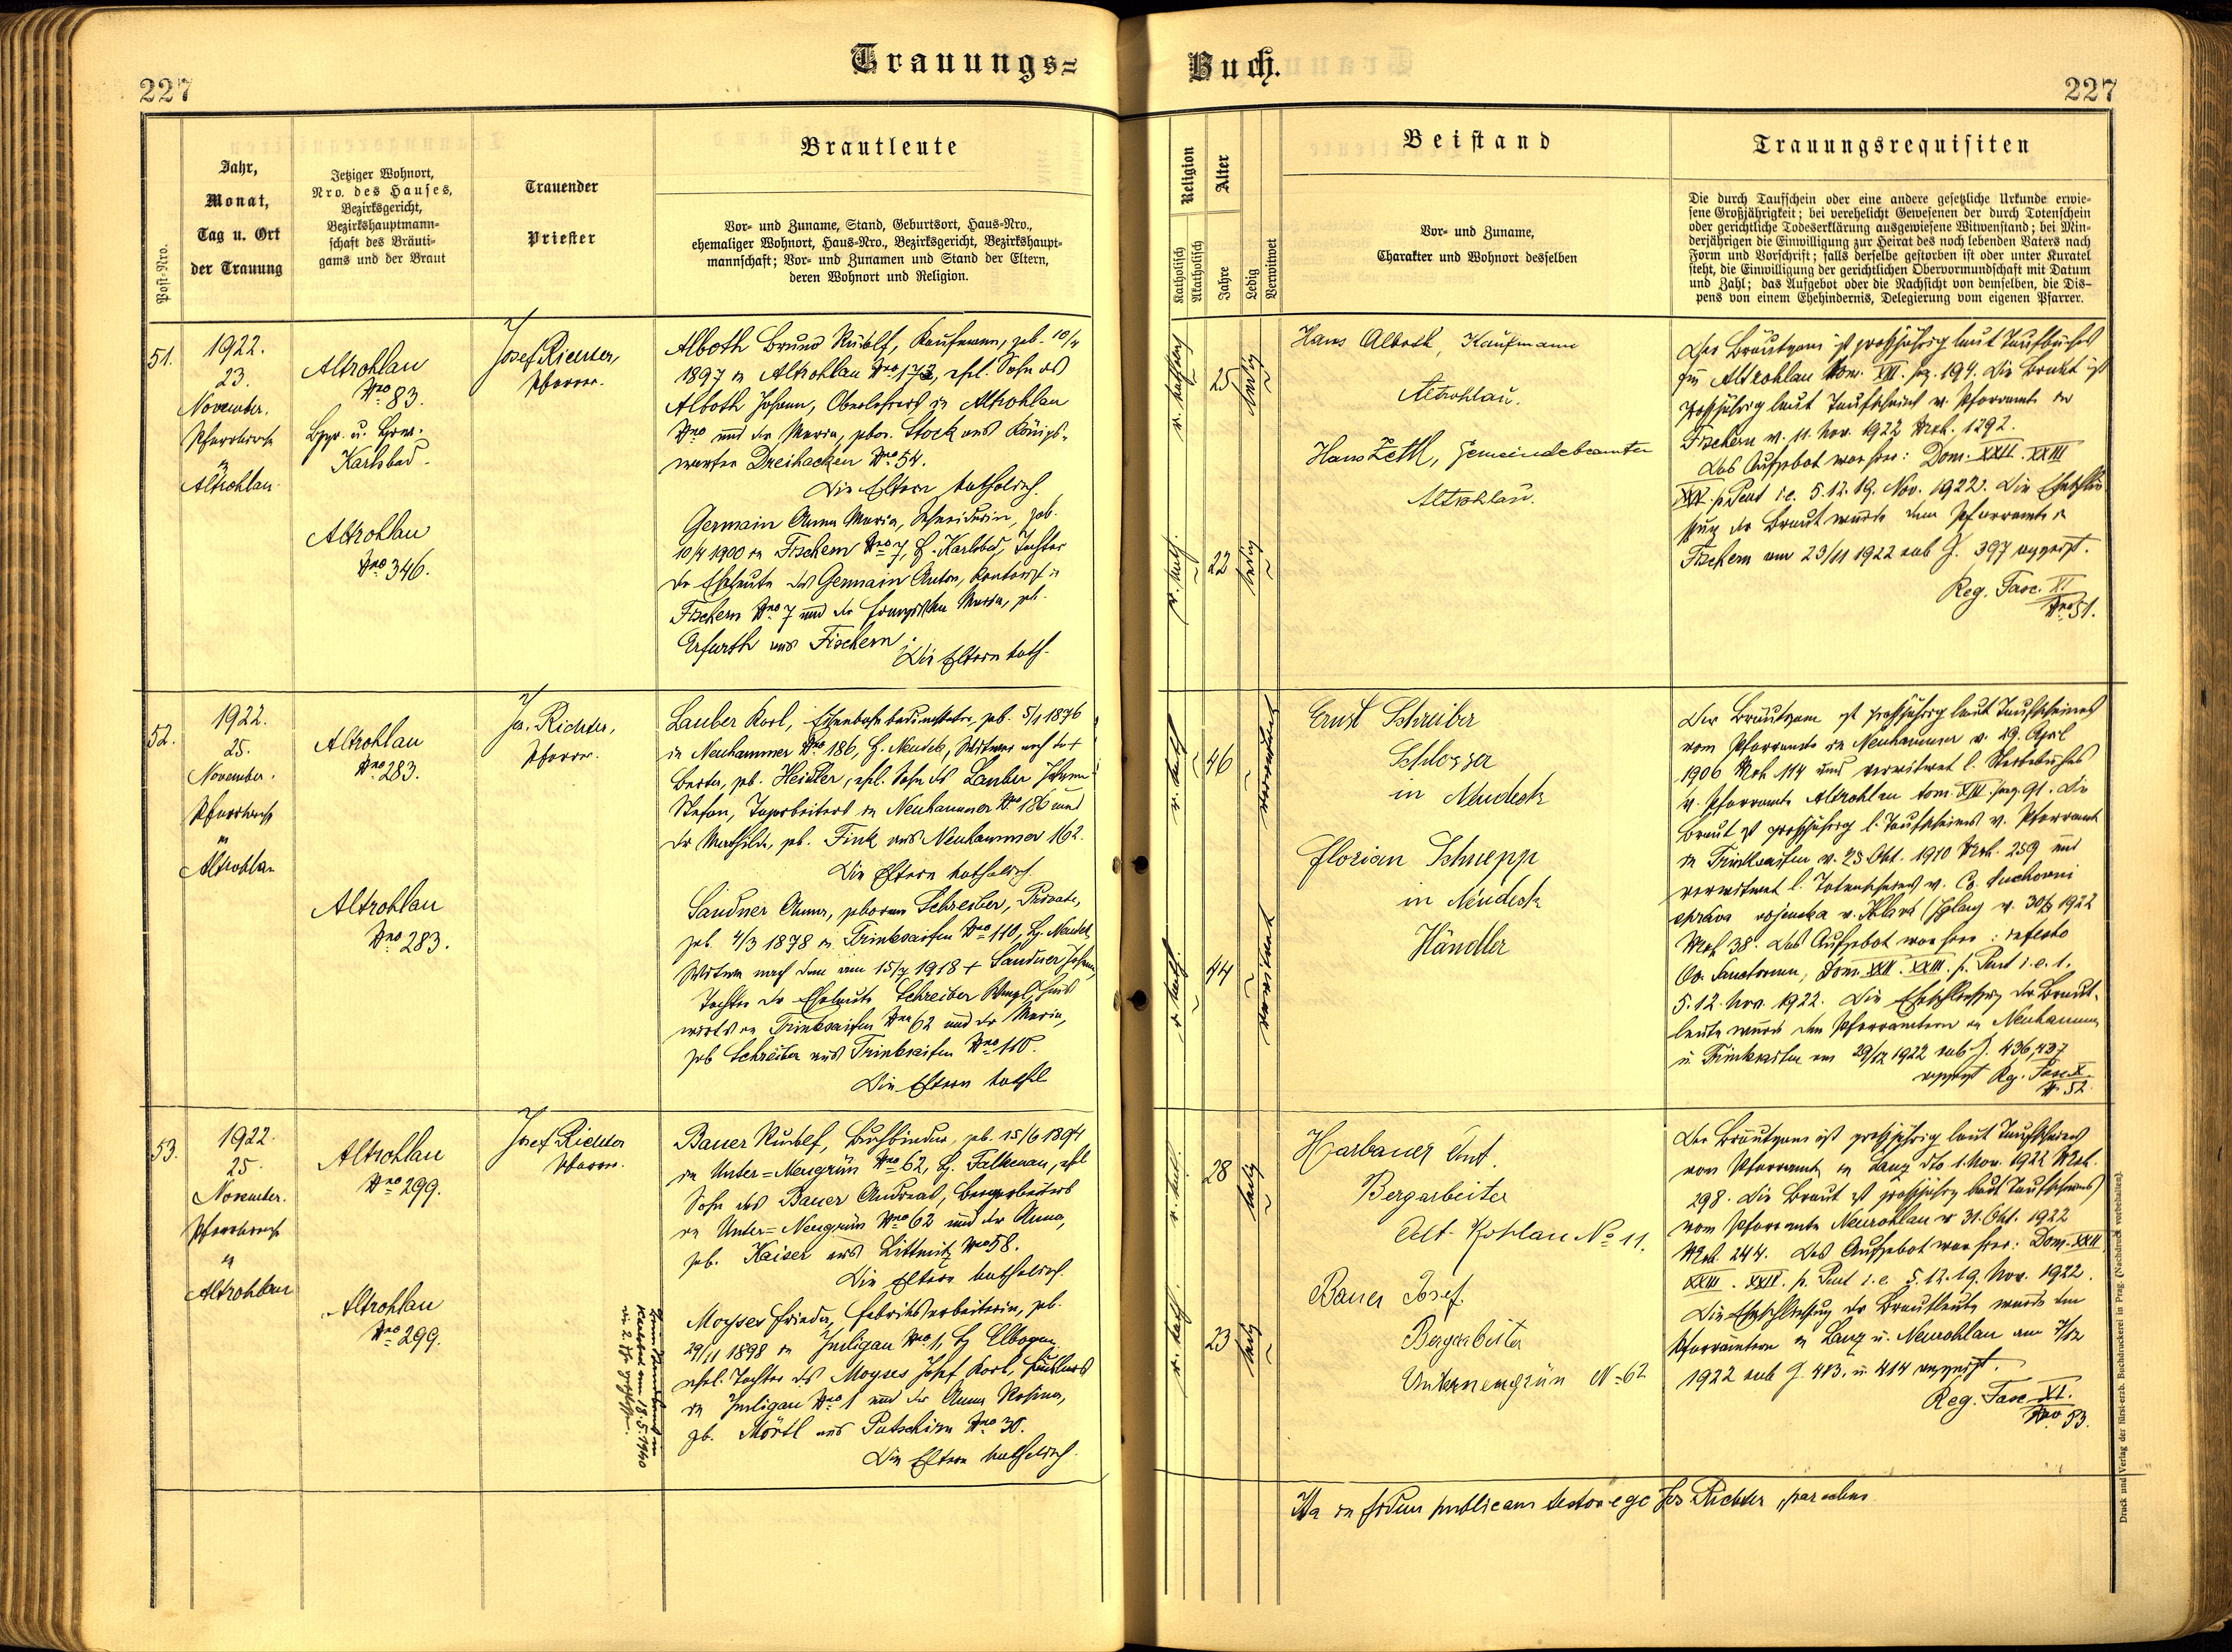 Trauungs=
Buch.
227
227
Post-Nro.
Jahr,
Monat,
Tag u. Ort
der Trauung
Jetziger Wohnort,
Nro. des Hauses,
Bezirksgericht,
Bezirkshauptmann-
schaft des Bräuti-
gams und der Braut
Trauender
Priester
Brautleute
Vor- und Zuname, Stand, Geburtsort, Haus-Nro.,
ehemaliger Wohnort, Haus-Nro., Bezirksgericht, Bezirkshaupt-
mannschaft; Vor- und Zunamen und Stand der Eltern,
deren Wohnort und Religion.
Religion
Katholisch
Akatholisch
Alter
Jahre
Ledig
Verwitwet
Beistand
Vor- und Zuname,
Charakter und Wohnort desselben
Trauungsrequisiten
Die durch Taufschein oder eine andere gesetzliche Urkunde erwie-
sene Großjährigkeit; bei verehelicht Gewesenen der durch Totenschein
oder gerichtliche Todeserklärung ausgewiesene Witwenstand; bei Min-
derjährigen die Einwilligung zur Heirat des noch lebenden Vaters nach
Form und Vorschrift; falls derselbe gestorben ist oder unter Kuratel
steht, die Einwilligung der gerichtlichen Obervormundschaft mit Datum
und Zahl; das Aufgebot oder die Nachsicht von demselben, die Dis-
pens von einem Ehehindernis, Delegierung vom eigenen Pfarrer.
51.
1922.
23.
November.
Pfarrkirche
in
Altrohlau
Altrohlau
Nro 83.
Karlsbad.
Altrohlau
Nro 346.
Josef Richter,
Pfarrer.
Alboth Bruno Rudolf, Kaufmann, geb. 10/4
1897 in Altrohlau Nro 173, ehel. Sohn des
Alboth Johann, Oberlehrers in Altrohlau
Nro und der Maria, gebor. Stock aus Königs-
warter Dreihacken Nro 54.
Die Eltern katholisch.
Germain Anna Maria, Schneiderin, geb.
10/4 1900 in Fischern Nro 7, B. Karlsbad, Tochter
der Eheleute des Germain Anton, Kontorist in
Fischern Nro 7 und der Maria, geb.
Erfurth aus Fischern.
Die Eltern kath.
r. kathol.
25
ledig
r. kath.
22
ledig
Hans Alboth, Kaufmann
Altrohlau.
Hans Zettl, Gemeindebeamter
Altrohlau.
Der Bräutigam ist großjährig laut Taufbuches
für Altrohlau tom. XIII. pag. 194. Die Braut ist
großjährig laut Taufschein v. Pfarramte in
Fischern v. 11. Nov. 1922 Mrk. 1292.
Das Aufgebot war hier: Dom. XXII. XXIII
XXIV. p. Pent i.e. 5. 12. 19. Nov. 1922. Die Eheschlie-
ßung der Braut wurde dem Pfarramte in
Fischern am 23/11 1922 sub Z. 397 angezeigt.
Reg. Fasc. XI.
Nro 51.
52.
1922.
25.
November.
Pfarrkirche
in
Altrohlau
Altrohlau
Nro 283.
Altrohlau
Nro 283.
Jos. Richter,
Pfarrer.
Lauber Karl, Eisenbahnbediensteter, geb. 5/1 1876
in Neuhammer Nro 186, B. Neudek, Witwer nach der +
Berta, geb. Heidler, ehel. Sohn des Lauber Johann
Stefan, Tagarbeiters in Neuhammer Nro 186 und
der Mathilde, geb. Fink aus Neuhammer 162.
Die Eltern katholisch.
Sandner Anna, geborene Schreiber, Private,
geb. 4/3 1878 in Trinksaifen Nro 110, B. Neudek,
Witwe nach dem am 15/7 1918 + Sandner Johann,
Tochter der Eheleute Schreiber Wenzl, Haus
wirts in Trinksaifen Nro 62 und der Maria,
geb Schreiber aus Trinksaifen Nro 110.
Die Eltern kathol
r. kath
46
verwitwet
r. kath.
44
verwitwet
Ernst Schreiber
Schlosser
in Neudek
Florian Schnepp
in Neudek
Händler
Der Bräutigam ist großjährig laut Taufscheines
vom Pfarramte in Neuhammer v. 29. April
1906 Mrk 114 und verwitwet l. Sterbebuches
v. Pfarramte Altrohlau tom. XIII. pag. 91. Die
Braut ist großjährig l. Taufscheines v. Pfarramt
in Trinksaifen v. 25 Okt. 1910 Mrk. 259 und
verwitwet l. Totenscheines v. Cs. duchovni
správa vojenská v. Jihlavě (Iglau) v. 1922
Mrk 38. Das Aufgebot war hier: in festo
Oo. Sanctorum, Dom. XXII. XXIII. p. Pent i.e. 1.
5. 12. Nov. 1922. Die Eheschließung der Braut-
leute wurde den Pfarrämtern in Neuhammer
u. Trinksaifen am 29/12 1922 sub Z. 436, 437
angezeigt Reg. Fasc X.
N. 52.
53.
1922.
25.
November.
Pfarrkirche
in
Altrohlau
Altrohlau
Nro 299.
Altrohlau
Nro 299.
Josef Richter
Pfarrer.
Bauer Rudolf, Buchbinder, geb. 15/6 1894
in Unter=Neugrün Nro 62, B. Falkenau, ehel
Sohn des Bauer Andreas, Bergarbeiters
in Unter=Neugrün Nro 62 und der Anna,
geb. Kaiser aus Littmitz Nro 58.
Die Eltern katholisch.
Moyses Frieda, Fabriksarbeiterin, geb.
29/11 1898 in Imligau Nro 1, B. Elbogen,
ehel. Tochter des Moyses Josef Karl, Häuslers
in Imligau Nro 1 und der Anna Rosina,
gb. Mörtl aus Putschirn Nro 30.
Die Eltern katholisch.
r. kath.
28
ledig
r. kath.
23
ledig
Harbauer Ant.
Bergarbeiter
Alt-Rohlau No 11.
Bauer Josef.
Bergarbeiter
Unterneugrün No 62
Der Bräutigam ist großjährig laut Taufscheines
vom Pfarramte in Lanz dto 1. Nov. 1922 Mrk.
298. Die Braut ist großjährig laut Taufscheines
vom Pfarramte Neurohlau v 31. Okt. 1922
Mrk. 244. Das Aufgebot war hier: Dom. XXII
XXIII. XXIV. p. Pent i.e. 5. 12. 19. Nov. 1922.
Die Eheschließung der Brautleute wurde den
Pfarrämtern in Lanz u. Neurohlau am 7/12
1922 sub Z. 413. u. 414 angezeigt.
Reg. Fasc XI.
Nro 53.
Ita in fidem publicam testor ego Jos Richter, parochus
Druck und Verlag der fürst-erzb. Buchdruckerei in Prag. (Nachdruck vorbehalten).